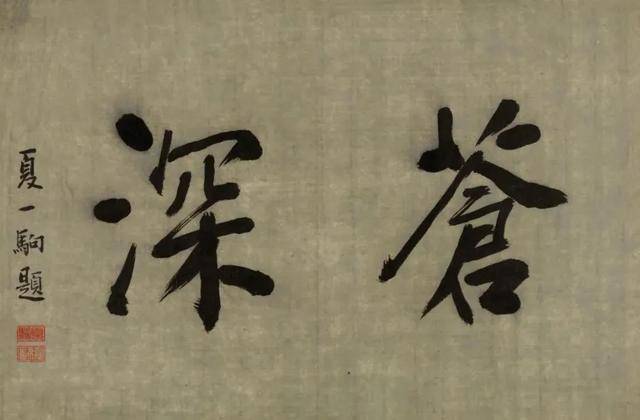 蒼深
夏一駒題